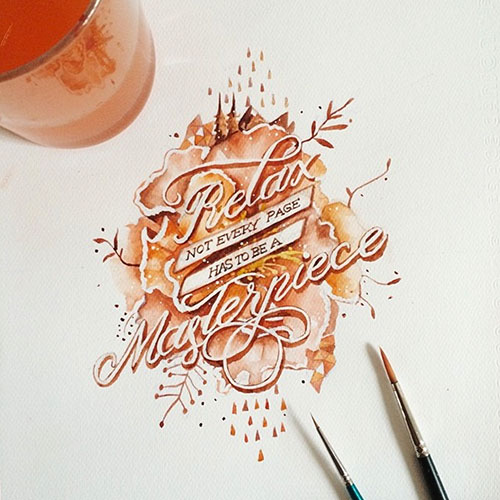 Relax
NOT EVERY PAGE
HAS TO BE A
Masterpiece